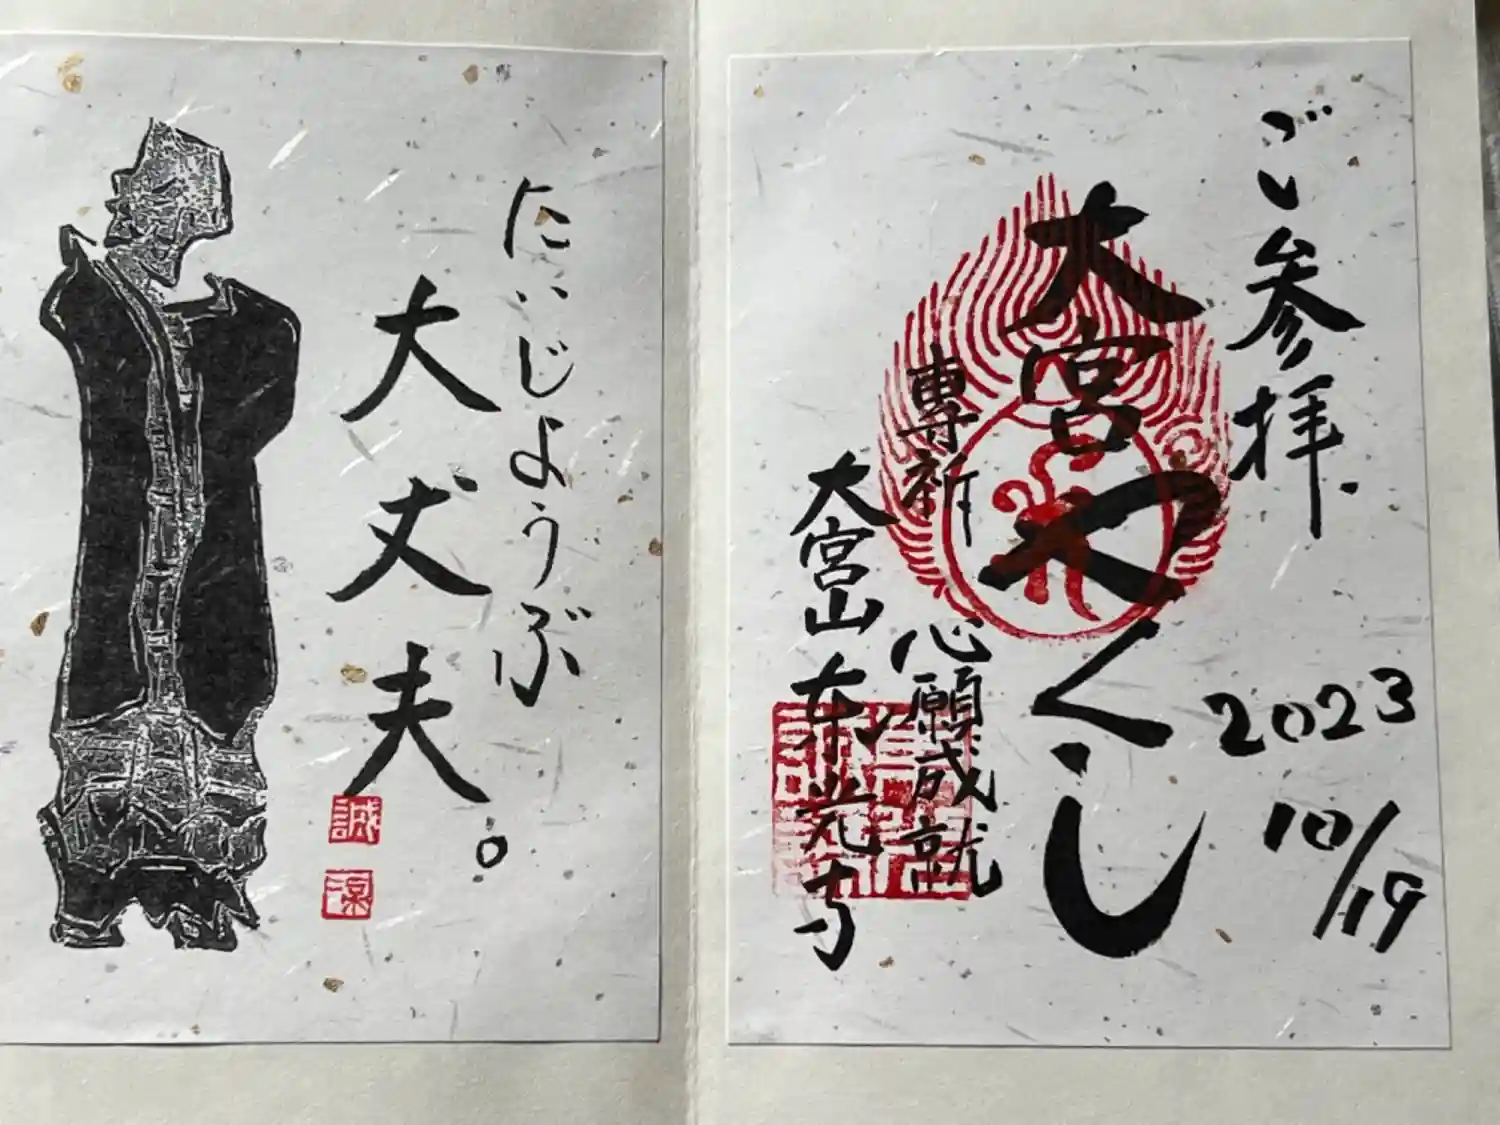 ご参拝.
2023
10/19
大宮やくし
專祈
心願成就
大宮山
東光寺
たいじょうぶ
大丈夫。
誠